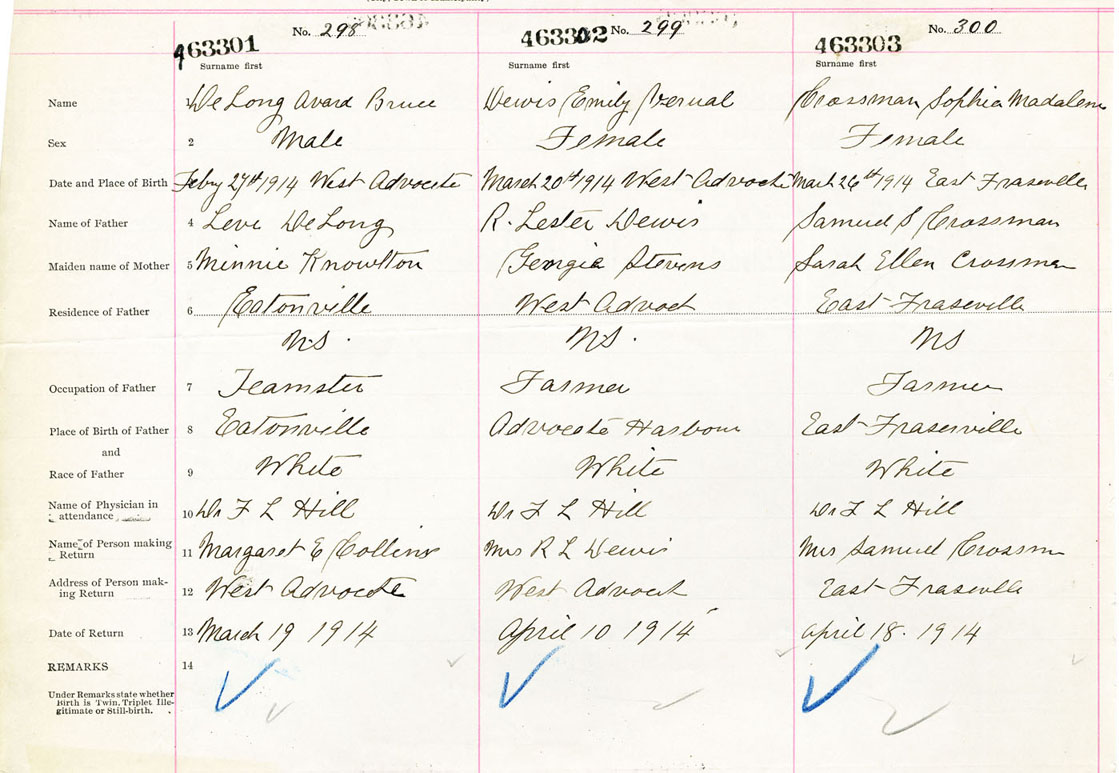 No. 298 No. 299 No. 300
463301 463302 463303
Surname first Surname first Surname first
Name 1 DeLong Avard Bruce Dewis Emily Vernal Crossman Sophia Madalene
Sex 2 Male Female Female
Date and Place of Birth Feby 27th 1914 West Advocate March 20th 1914 West Advocate March 26th 1914 East Fraserville
Name of Father 4 Levi DeLong R. Lester Dewis Samuel S Crossman
Maiden name of Mother 5 Minnie Knowlton Georgia Stevens Sarah Ellen Crossman
Residence of Father 6 Eatonville West Advocat East Fraseville
NS. NS. NS
Occupation of Father 7 Teamster Farmer Farmer
Place of Birth of Father 8 Eatonville Advocate Harbour East Fraserville
and
Race of Father 9 White White White
Name of Physician in
attendance 10 Dr F L Hill Dr F L Hill Dr F L Hill
Name of Person making
Return 11 Margaret E Collins Mrs R L Dewis Mrs Samuel Crossm
Address of Person mak-
ing Return 12 West Advocate West Advocat East Fraseville
Date of Return 13 March 19 1914 April 10 1914 April 18. 1914
REMARKS 14
Under Remarks state whether
Birth is Twin, Triplet Ille-
gitimate or Still-birth.